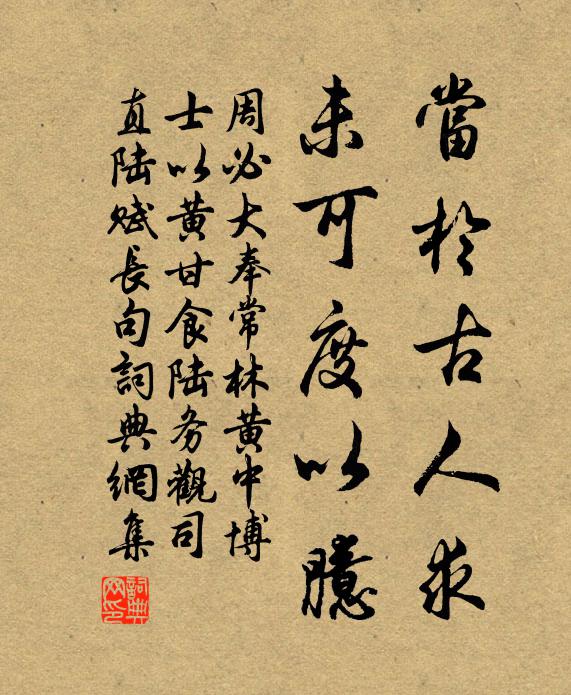 當於古人求
未可度以臆
周必大奉常林黄中博
士以黄甘食陸务觀司
直陸赋長句詞典網集
詞典网印